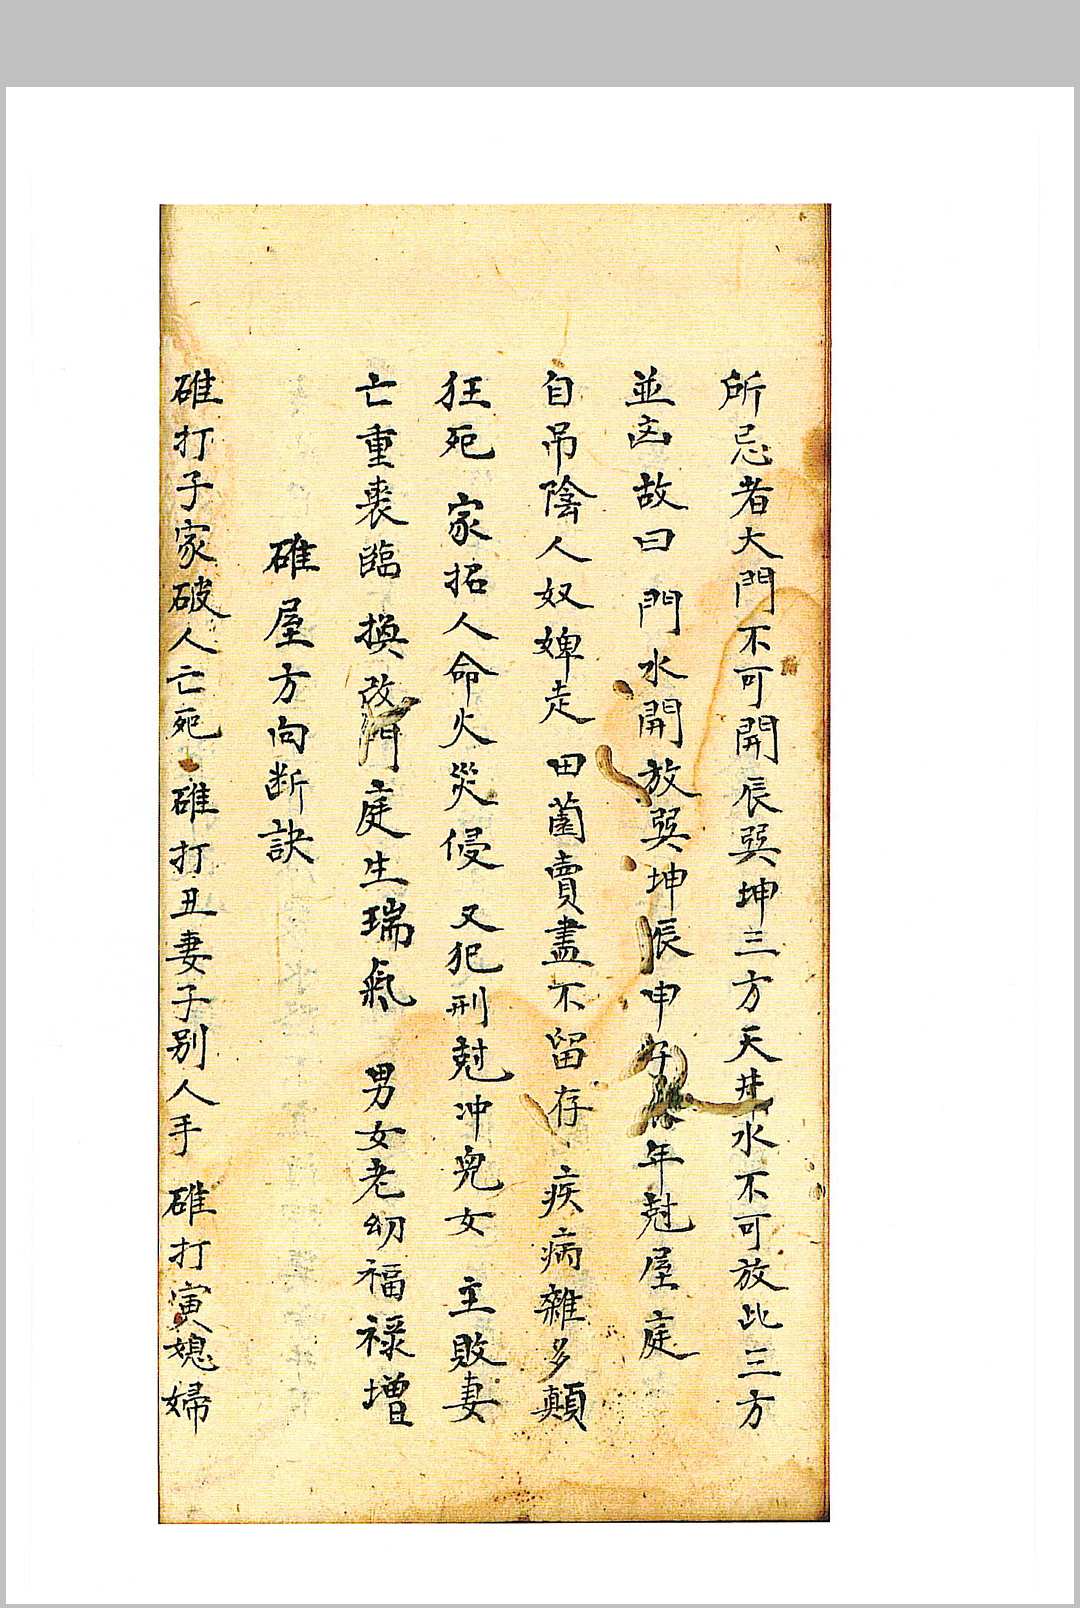 所忌者大門不可開辰巽坤三方天井水不可放此三方
並凶故曰 門水開放巽坤辰申子年尅屋庭
自吊陰人奴婢走田薗賣盡不留存疾病雜多顛
狂死 家招人命火災侵 又犯刑尅冲兒女 主敗妻
亡重喪臨 換改門庭生瑞氣 男女老幼福祿增
碓屋方向断訣
碓打子家破人亡死 碓打丑妻子别人手 碓打寅媳婦